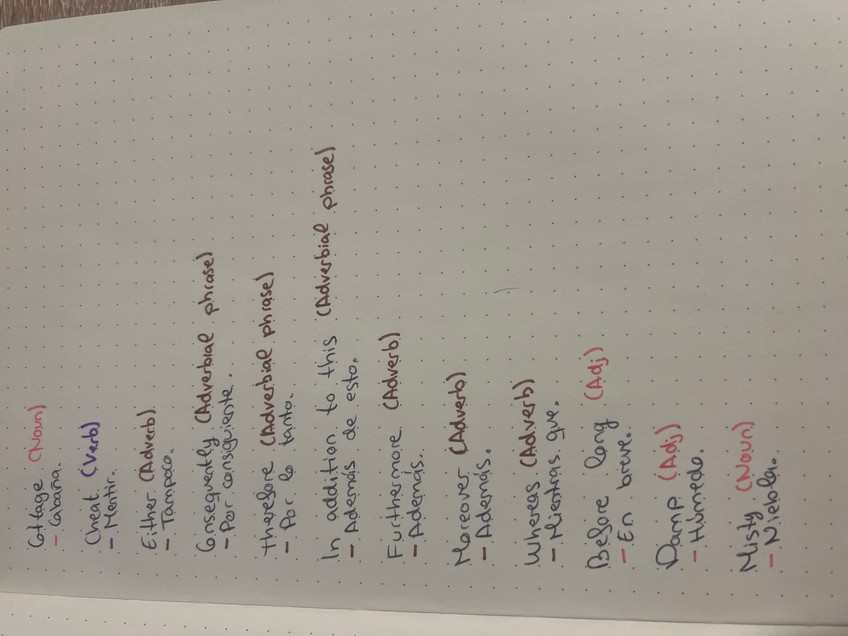 Cottage (Noun)
- Cabaña.
Cheat (Verb)
- Mentir.
Either (Adverb)
- Tampoco.
Consequently (Adverbial phrase)
- Por consiguiente.
therefore (Adverbial phrase)
- Por lo tanto.
In addition to this (Adverbial phrase)
- Además de esto.
Furthermore (Adverb)
- Además.
Moreover (Adverb)
- Además.
Whereas (Adverb)
- Mientras que.
Before long (Adj)
- En breve.
Damp (Adj)
- Húmedo.
Misty (Noun)
- Niebla.